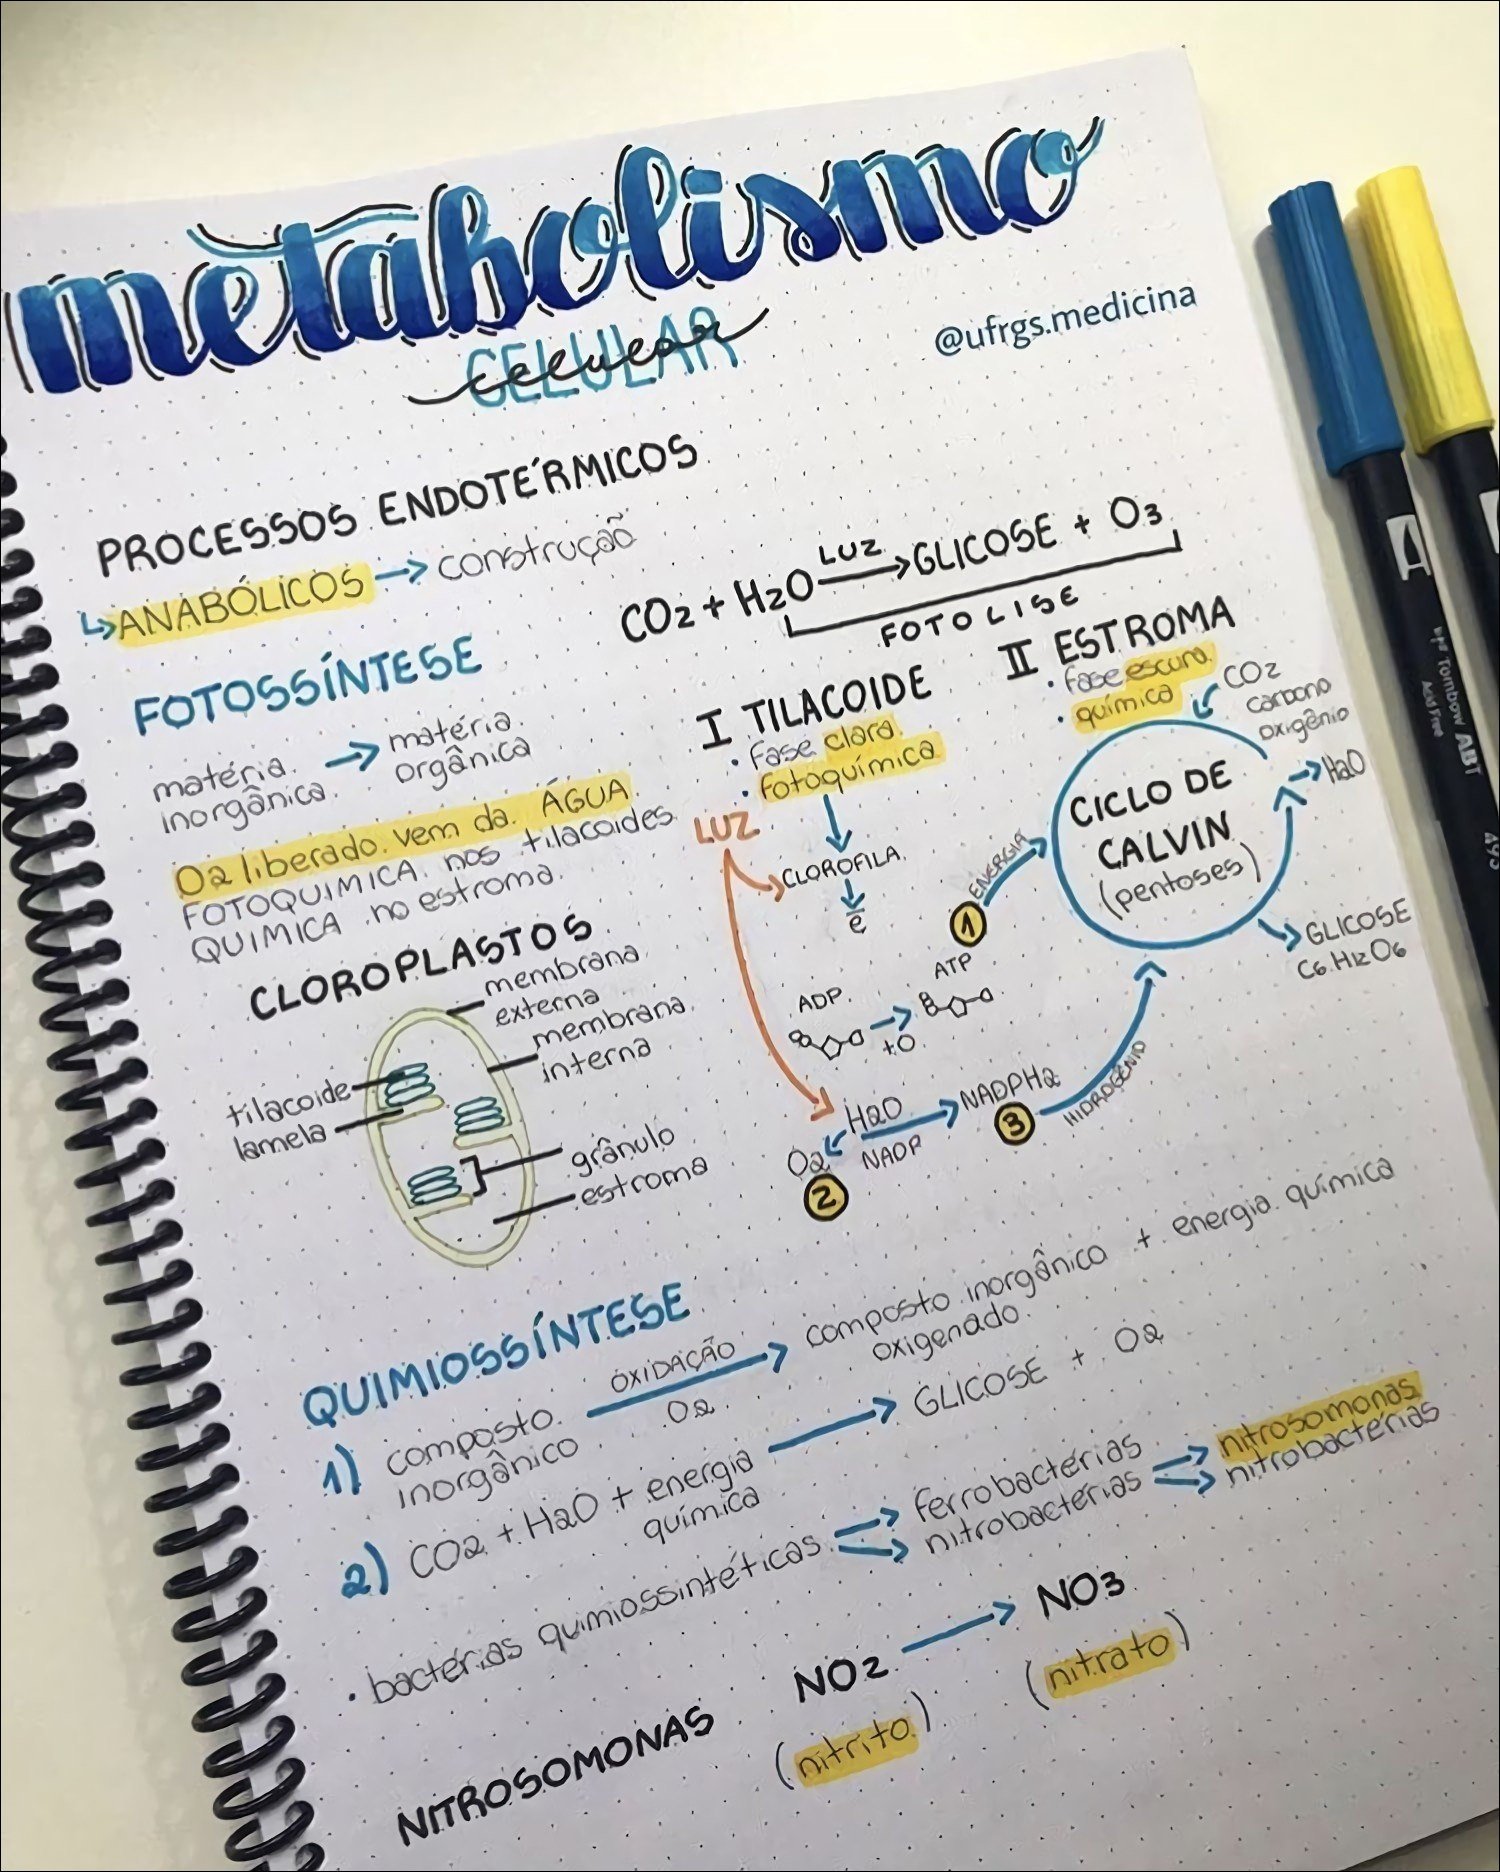 metabolismo
CELULAR
celular
@ufrgs.medicina
PROCESSOS ENDOTÉRMICOS
ANABÓLICOS → construção
CO2 + H2O LUZ → GLICOSE + O3
FOTOLISE
FOTOSSÍNTESE
matéria inorgânica → matéria orgânica
O2 liberado vem da ÁGUA
FOTOQUIMICA nos tilacoides
QUIMICA no estroma
I TILACOIDE
• fase clara
• fotoquímica
LUZ
CLOROFILA
e
ADP
+O
ATP
1
ENERGIA
H2O
NADP
O2
2
NADPH2
3
HIDROGÊNIO
II ESTROMA
• fase escura
• química
CO2
carbono
oxigênio
H2O
CICLO DE
CALVIN
(pentoses)
GLICOSE
C6H12O6
CLOROPLASTOS
membrana
externa
membrana
interna
tilacoide
lamela
grânulo
estroma
QUIMIOSSÍNTESE
1) composto inorgânico OXIDAÇÃO O2 → composto inorgânico oxigenado + energia química
2) CO2 + H2O + energia química → GLICOSE + O2
• bactérias quimiossintéticas
ferrobactérias
nitrobactérias
nitrosomonas
nitrobactérias
NITROSOMONAS
NO2 → NO3
(nitrito)
(nitrato)
Tombow ABT
Acid Free
493